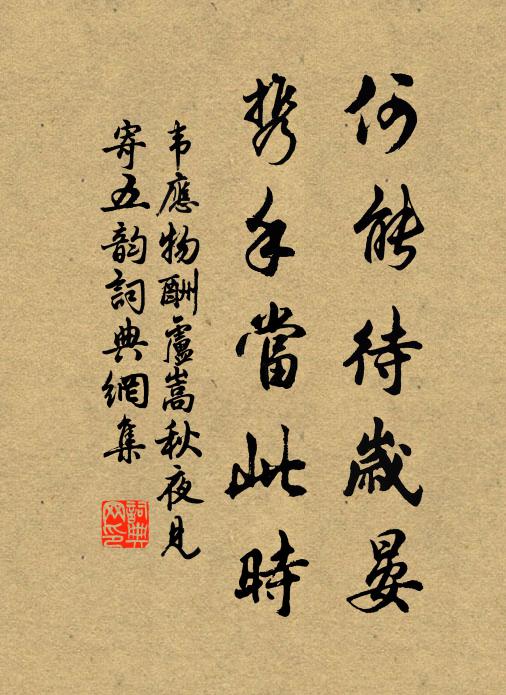 何能待歲晏
攜手當此時
韦應物酬盧嵩秋夜見
寄五韵詞典網集
詞典
网印